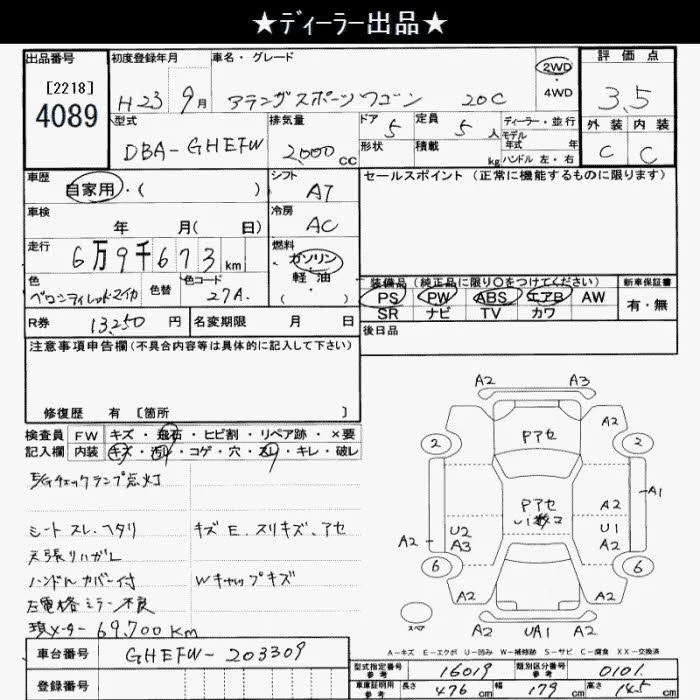 ★ディーラー出品★
出品番号 初度登録年月 車名・グレード 評価点
[2218] 4089 H23 9月 アテンザスポーツワゴン 20C 2WD・4WD 3.5
型式 排気量 ドア 定員 ディーラー・並行 外装 内装
DBA-GHEFW 2,000cc 5 5人 モデル年式 年 C C
形状 積載 kg ハンドル 左・右
車歴 シフト セールスポイント(正常に機能するものに限ります)
自家用・( ) AT
車検 冷房
年 月( 日) AC
走行 燃料
6万9千673km ガソリン・軽油
色 色替 色コード ( )
ベロシティレッドマイカ 27A
装備品(純正品に限り○をつけてください) 新車保証書
PS PW ABS エアB AW 有・無
SR ナビ TV カワ
R券 13,250円 名変期限 月 日 後日品
注意事項申告欄(不具合内容等は具体的に記入して下さい)
修復歴 有 [箇所 ]
検査員 FW キズ・飛石・ヒビ割・リペア跡・×要
記入欄 内装 キズ・汚れ・コゲ・穴・スレ・キレ・破レ
チェックランプ点灯
シートスレ.ヘタリ キズ E.スリキズ.アセ
天張リハガレ
ハンドルカバー付 Wキャップキズ
左電格ミラー不良
現メーター 69,700km
A2 A3
Pアセ A2
2 2
A1
Pアセ A2
U1
U2 U1
A2 A3 A2
6 6
A2 A2
スペア A2 UA1 A2
A-キズ E-エクボ U-凹み W-補修跡 S-サビ C-腐食 XX-交換済
車台番号 GHEFW-203309
登録番号
型式指定番号 参考 16019 類別区分番号 参考 0101
車庫証明用 参考 長さ 476cm 幅 179cm 高さ 145cm